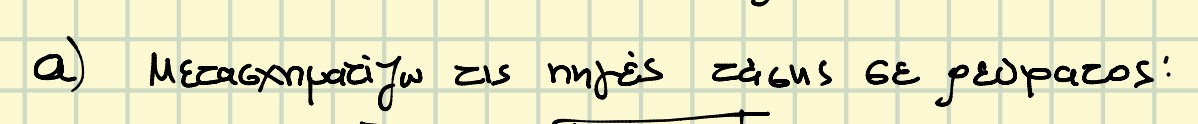 α) Μετασχηματίζω τις πηγές τάσης σε ρεύματος: